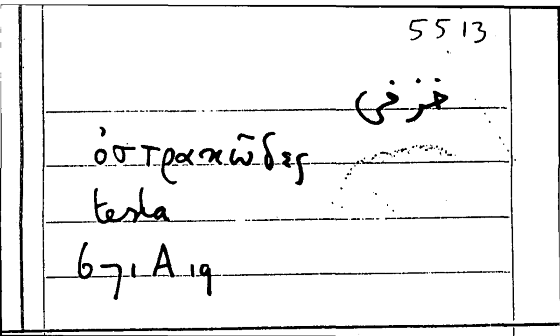 5513
خزفى
ὀστρακῶδες
testa
671 A 19